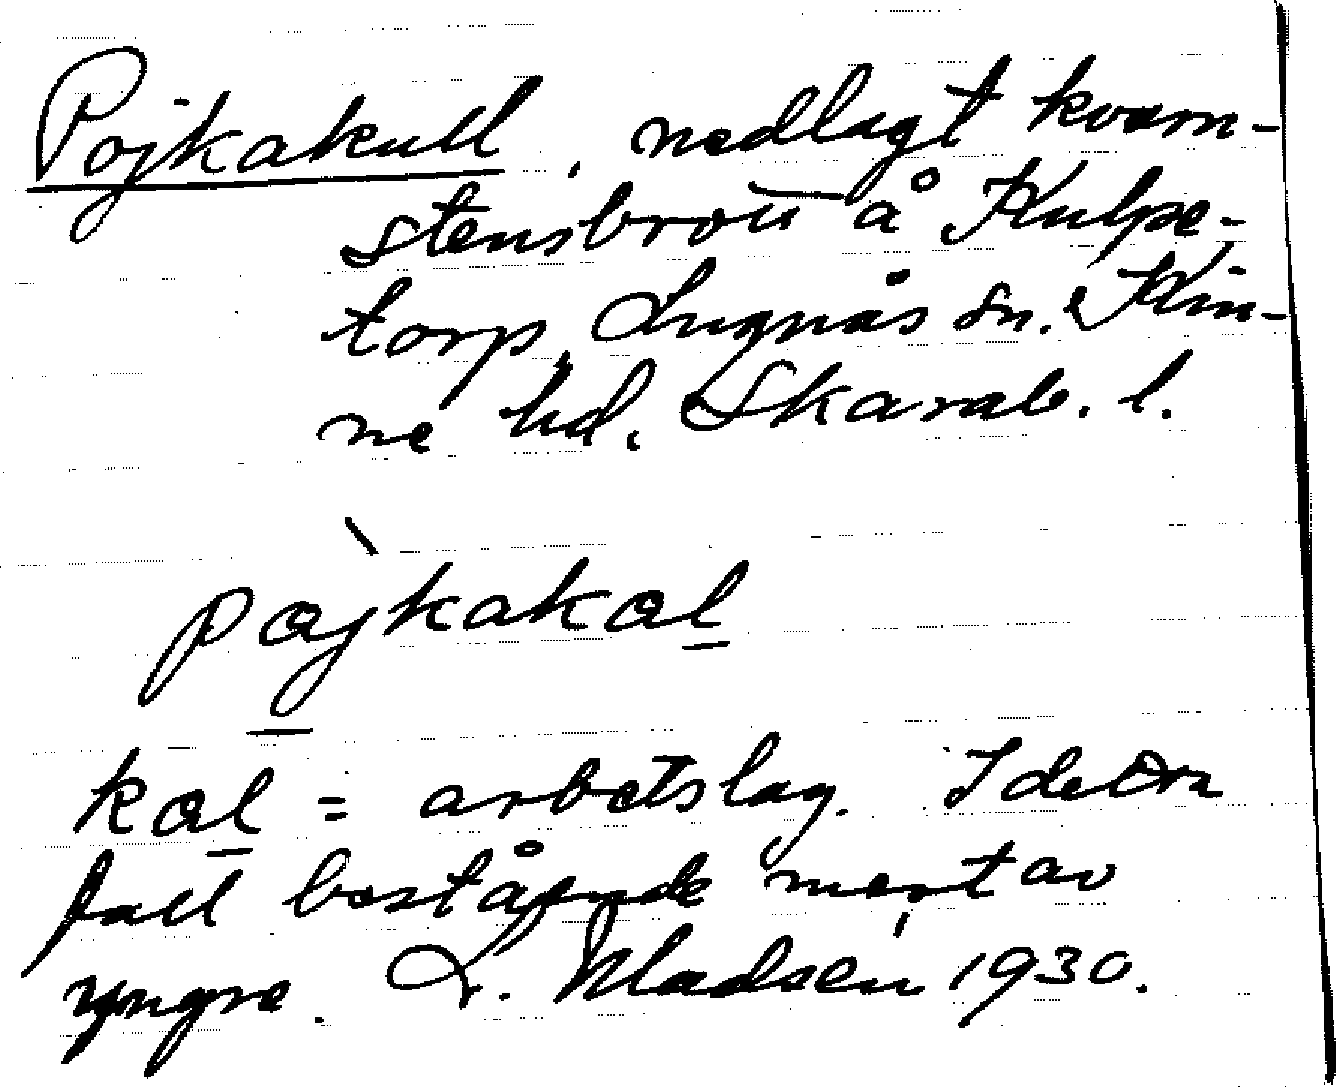 Pojkakull, nedlagt kvarn-
stensbrott å Kulpe-
torp, Lugnås sn. Kin-
ne hd. Skarab. l.
pojkakal
kal = arbetslag. I detta
fall bestående mest av
yngre. L. Madsén 1930.